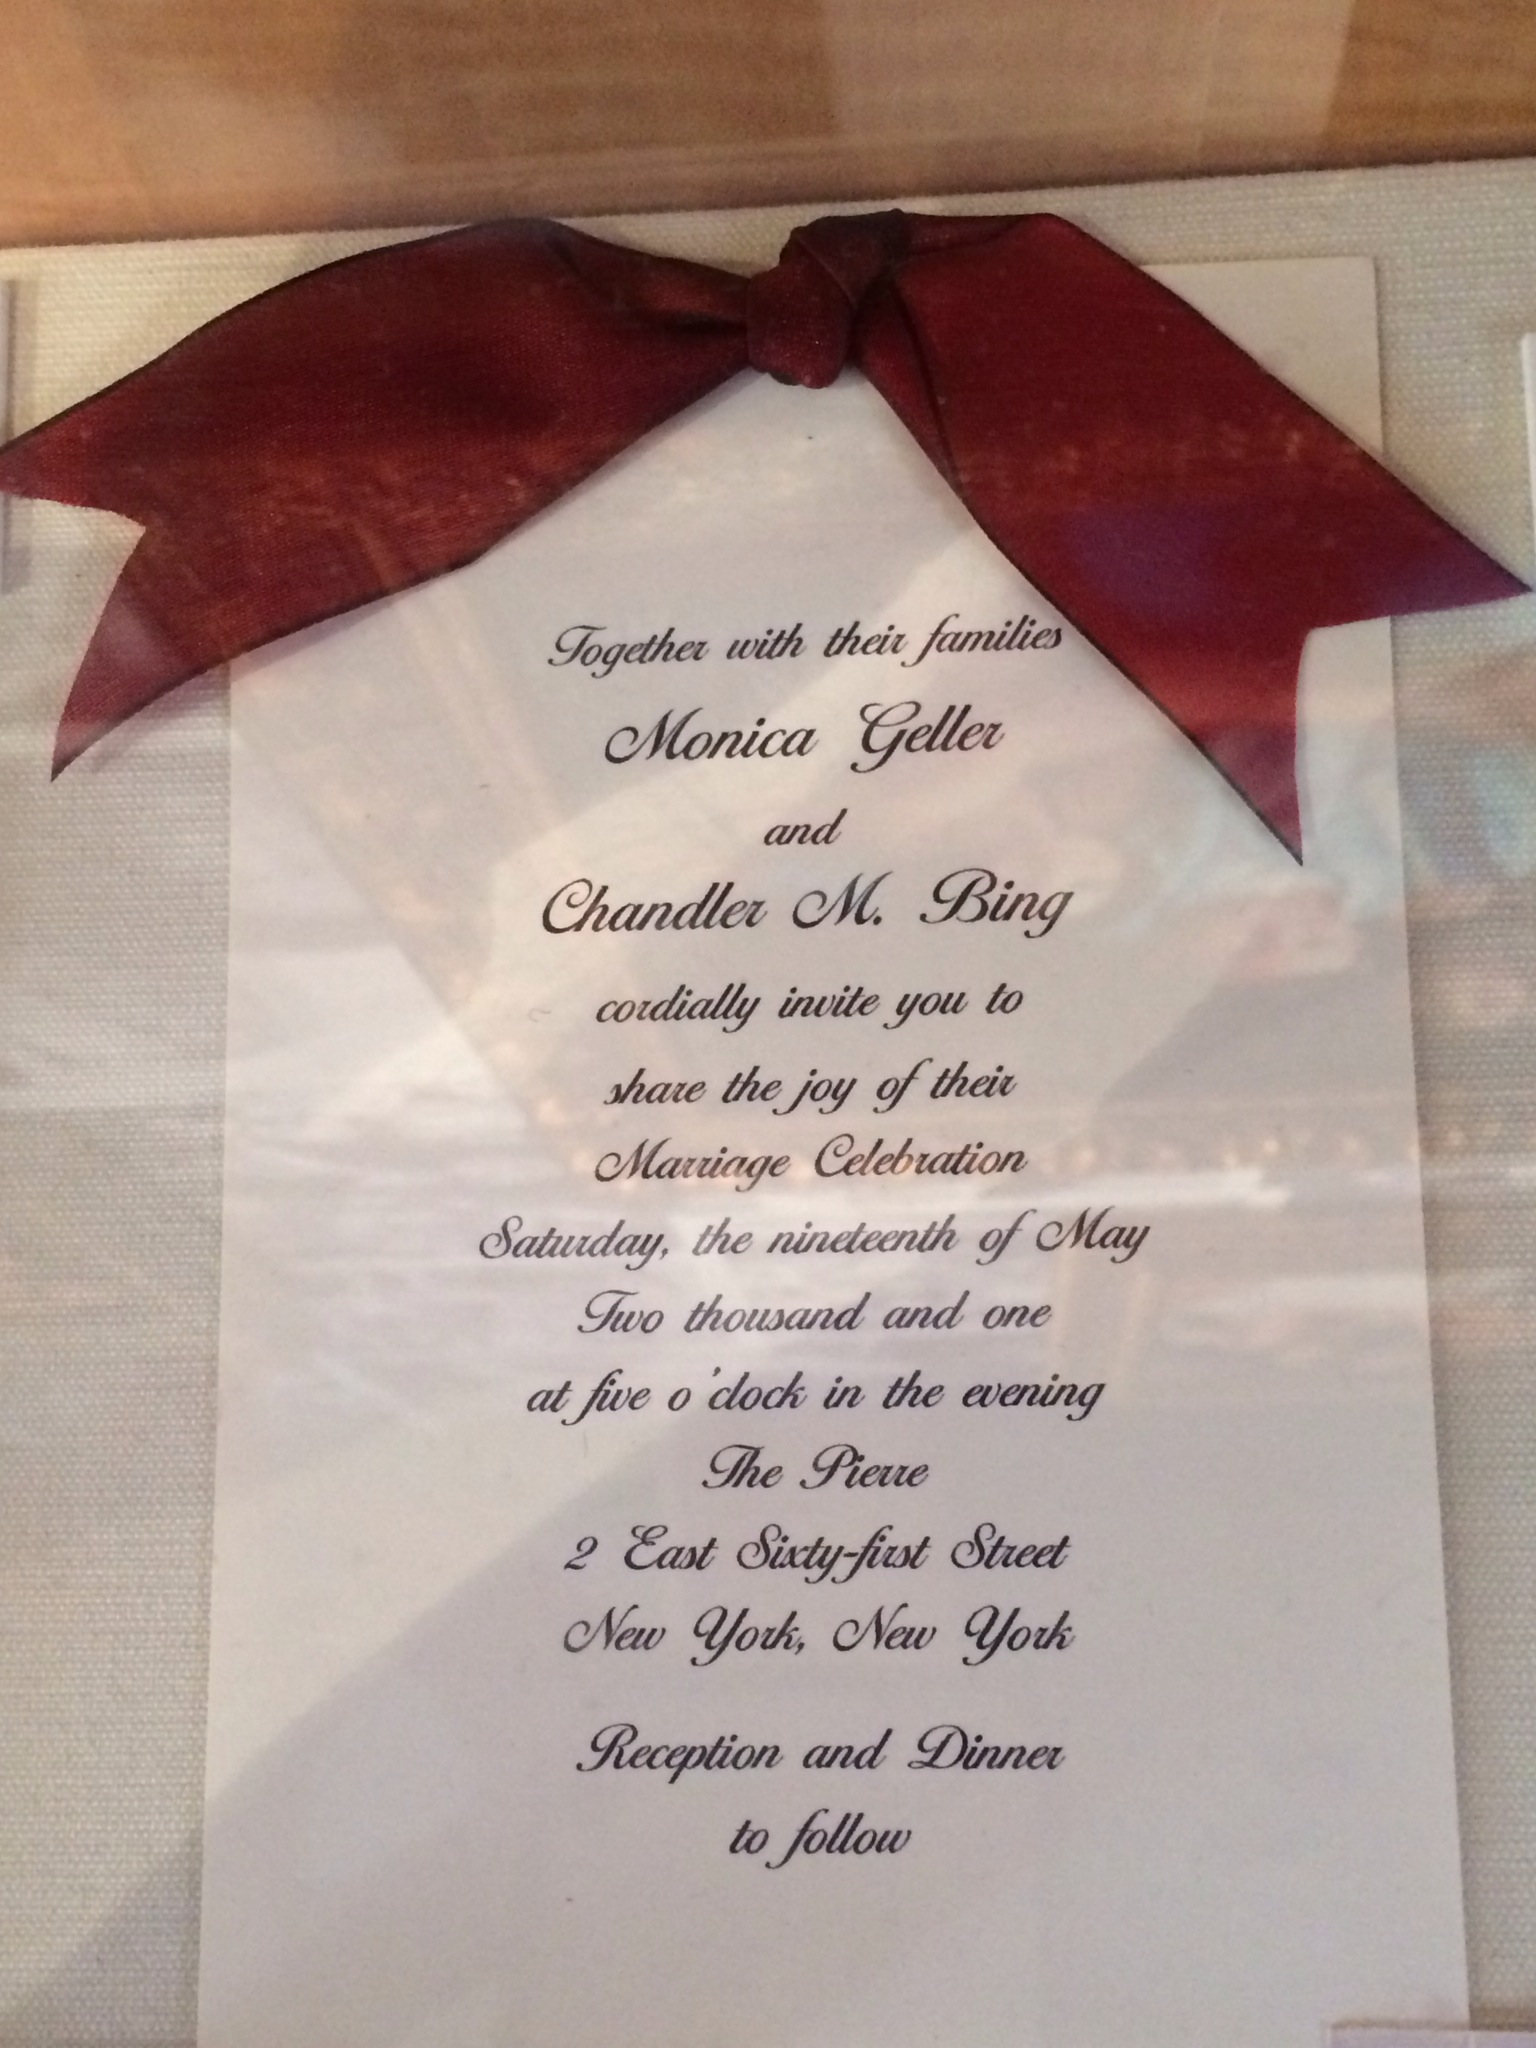 Together with their families
Monica Geller
and
Chandler M. Bing
cordially invite you to
share the joy of their
Marriage Celebration
Saturday, the nineteenth of May
Two thousand and one
at five o'clock in the evening
The Pierre
2 East Sixty-first Street
New York, New York
Reception and Dinner
to follow